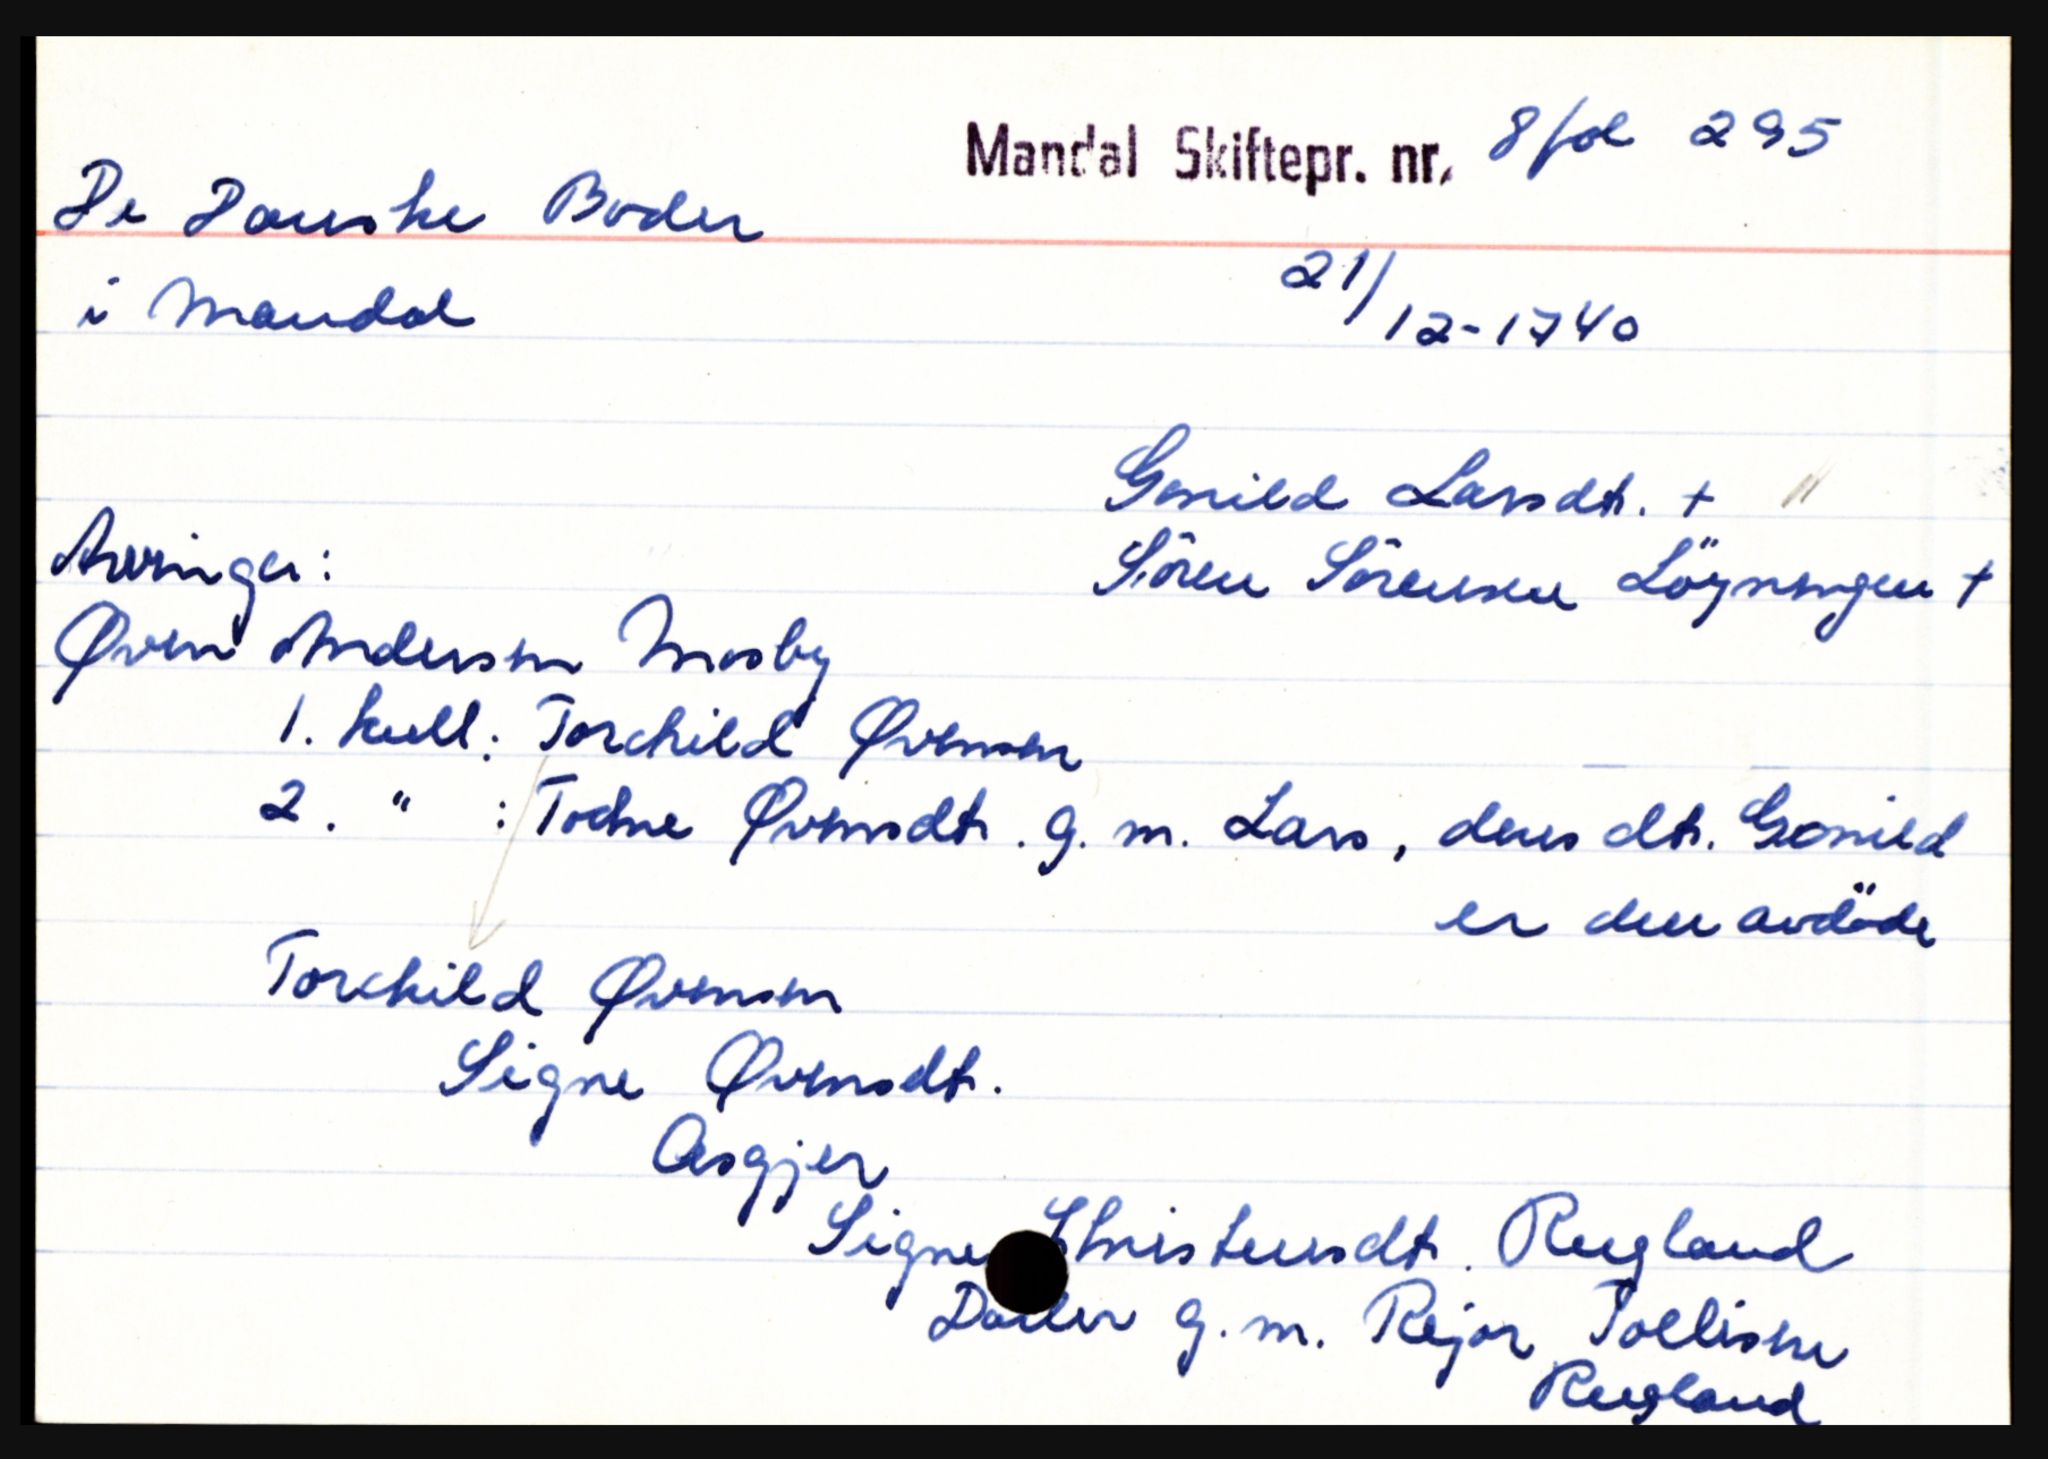 Mandal Skiftepr. nr. 8 fol 295
De Danske Boder
i Mandal
21/12-1740
Gonild Larsdtr. +
Sören Sörensen Löyningen +
Arvinger:
Øven Andersen Mosby
1. kull: Torchild Øvensen
2. " : Tochne Øvensdtr. g. m. Lars, deres dtr. Gonild
er den avdöde
Torchild Øvensen
Signe Øvensdtr.
Asgjer
Signe Christensdtr. Rugland
Dotter g. m. Rejor Tollisen
Rugland